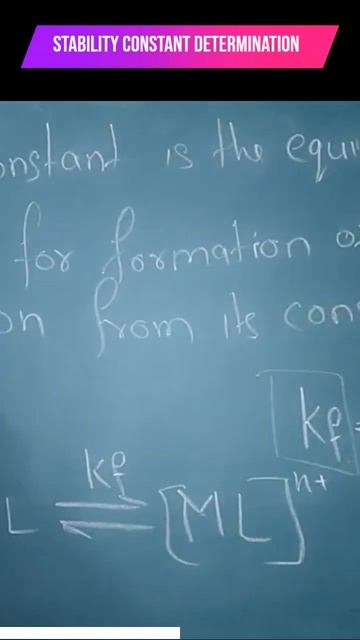 STABILITY CONSTANT DETERMINATION
onstant is the equi
for formation o
on from its con
kf =
kf
L ⇌ [ML]n+